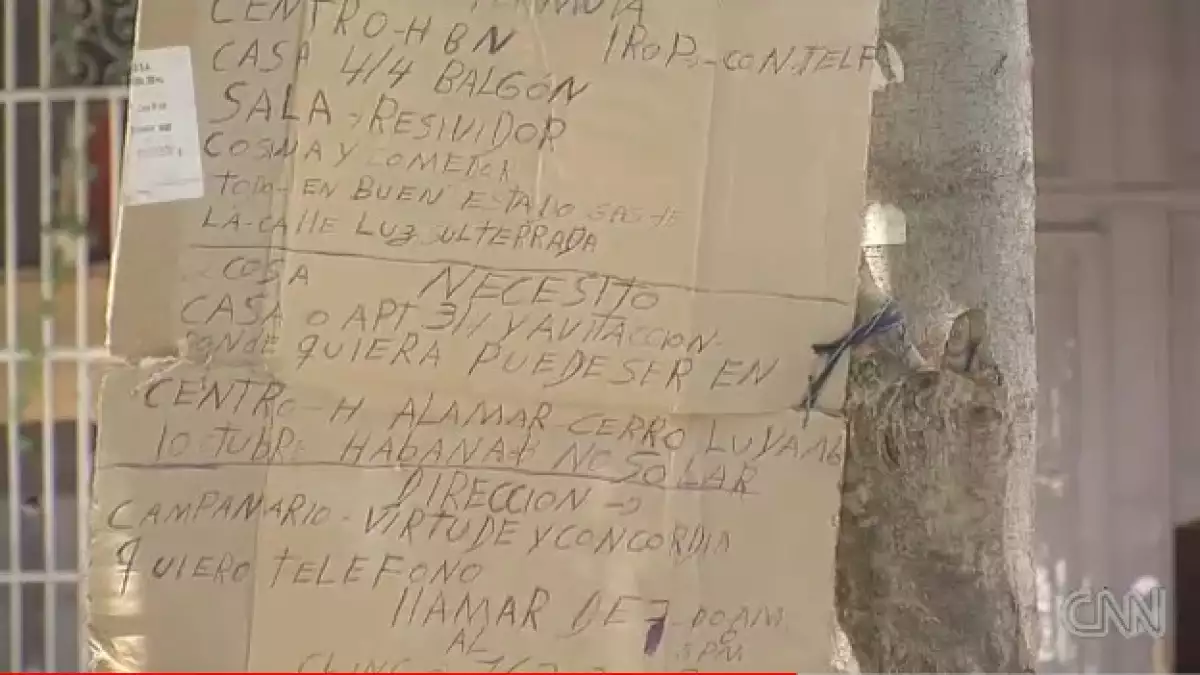 CENTRO-HBN 1ROP.-CON.TELF
CASA 4/4 BALGÓN
SALA Y RESIVIDOR
COSINA Y COMETOR
TODO-EN BUEN ESTADO
LA-CALLE LUZ SULTERRADA
COSA NECESITO
CASA O APT 3/1 Y AVITACCION-
DONDE QUIERA PUEDE SER EN
CENTRO-H ALAMAR-CERRO, LUYANO
10 OCTUBRE HABANA NO SOLAR
DIRECCION →
CAMPANARIO-VIRTUDE Y CONCORDIA
QUIERO TELEFONO
LLAMAR DE 7-00 AM
AL 5PM
CNN